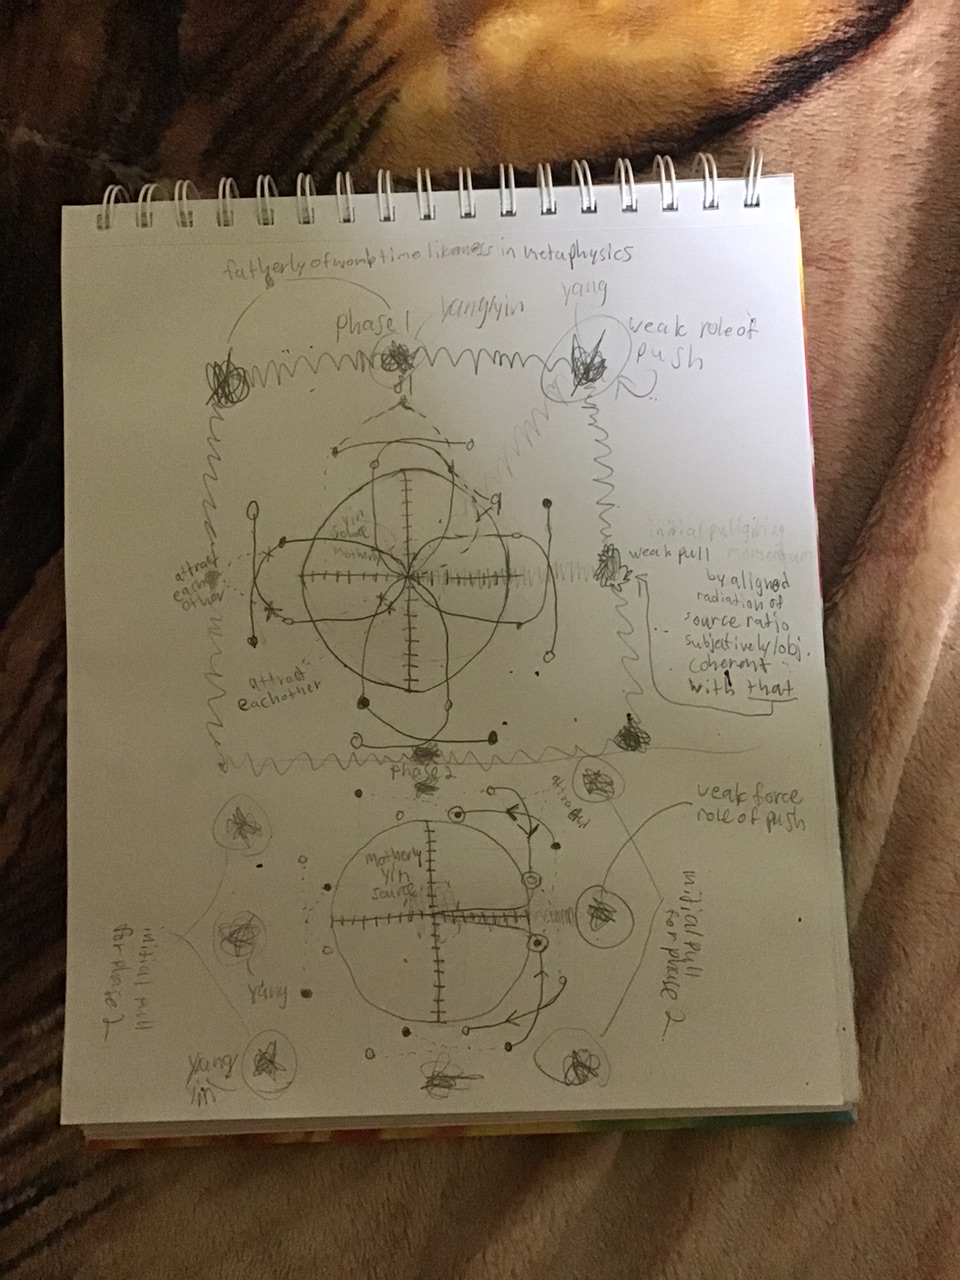 fatherly of womb time likeness in metaphysics
phase 1
yang/yin
yang
weak role of
push
yin
source
motherly
attract
each
other
attract
eachother
initial pull giving
momentum
weak pull
by aligned
radiation of
source ratio
subjectively/obj.
coherent
with that
phase 2
attracted
weak force
role of push
motherly
yin
source
initial pull
for phase 2
yang
yang/
yin
initial pull
for phase 2